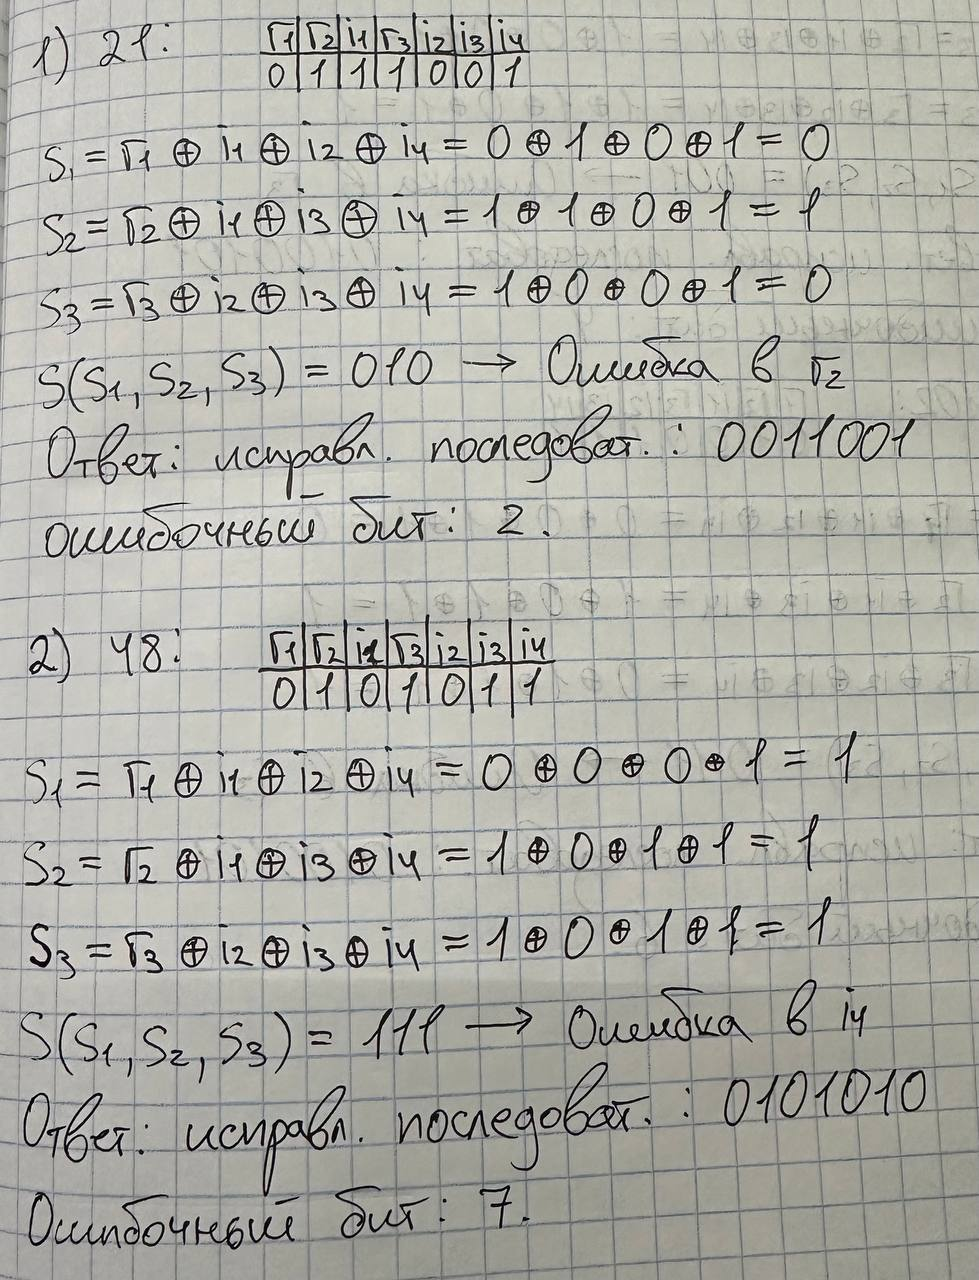 1) 21: r1 r2 i1 r3 i2 i3 i4
0 1 1 1 0 0 1
S1 = r1 ⊕ i1 ⊕ i2 ⊕ i4 = 0 ⊕ 1 ⊕ 0 ⊕ 1 = 0
S2 = r2 ⊕ i1 ⊕ i3 ⊕ i4 = 1 ⊕ 1 ⊕ 0 ⊕ 1 = 1
S3 = r3 ⊕ i2 ⊕ i3 ⊕ i4 = 1 ⊕ 0 ⊕ 0 ⊕ 1 = 0
S(S1, S2, S3) = 010 → Ошибка в r2
Ответ: исправл. последоват.: 0011001
ошибочный бит: 2.
2) 48: r1 r2 i1 r3 i2 i3 i4
0 1 0 1 0 1 1
S1 = r1 ⊕ i1 ⊕ i2 ⊕ i4 = 0 ⊕ 0 ⊕ 0 ⊕ 1 = 1
S2 = r2 ⊕ i1 ⊕ i3 ⊕ i4 = 1 ⊕ 0 ⊕ 1 ⊕ 1 = 1
S3 = r3 ⊕ i2 ⊕ i3 ⊕ i4 = 1 ⊕ 0 ⊕ 1 ⊕ 1 = 1
S(S1, S2, S3) = 111 → Ошибка в i4
Ответ: исправл. последоват.: 0101010
Ошибочный бит: 7.